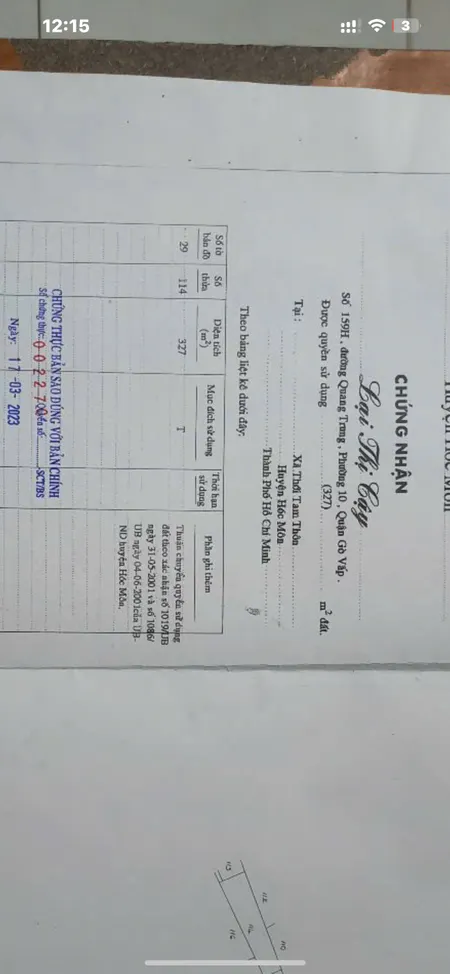 12:15
3
Huyện Hóc Môn
CHỨNG NHẬN
Lại Thị Cây
Số 159H, đường Quang Trung, Phường 10, Quận Gò Vấp.
Được quyền sử dụng (327) m² đất.
Tại: Xã Thới Tam Thôn
Huyện Hóc Môn
Thành Phố Hồ Chí Minh
Theo bảng liệt kê dưới đây:
Số tờ bản đồ Số thửa Diện tích (m²) Mục đích sử dụng Thời hạn sử dụng Phần ghi thêm
29 114 327 T
Thuận chuyển quyền sử dụng
đất theo xác nhận số 1019/UB
ngày 31-05-2001 và số 1086/
UB ngày 04-06-2001của UB-
ND huyện Hóc Môn.
CHỨNG THỰC BẢN SAO ĐÚNG VỚI BẢN CHÍNH
Số chứng thực: 0 0 2 2 7 Quyển số: SCT/BS
Ngày: 17-03-2023